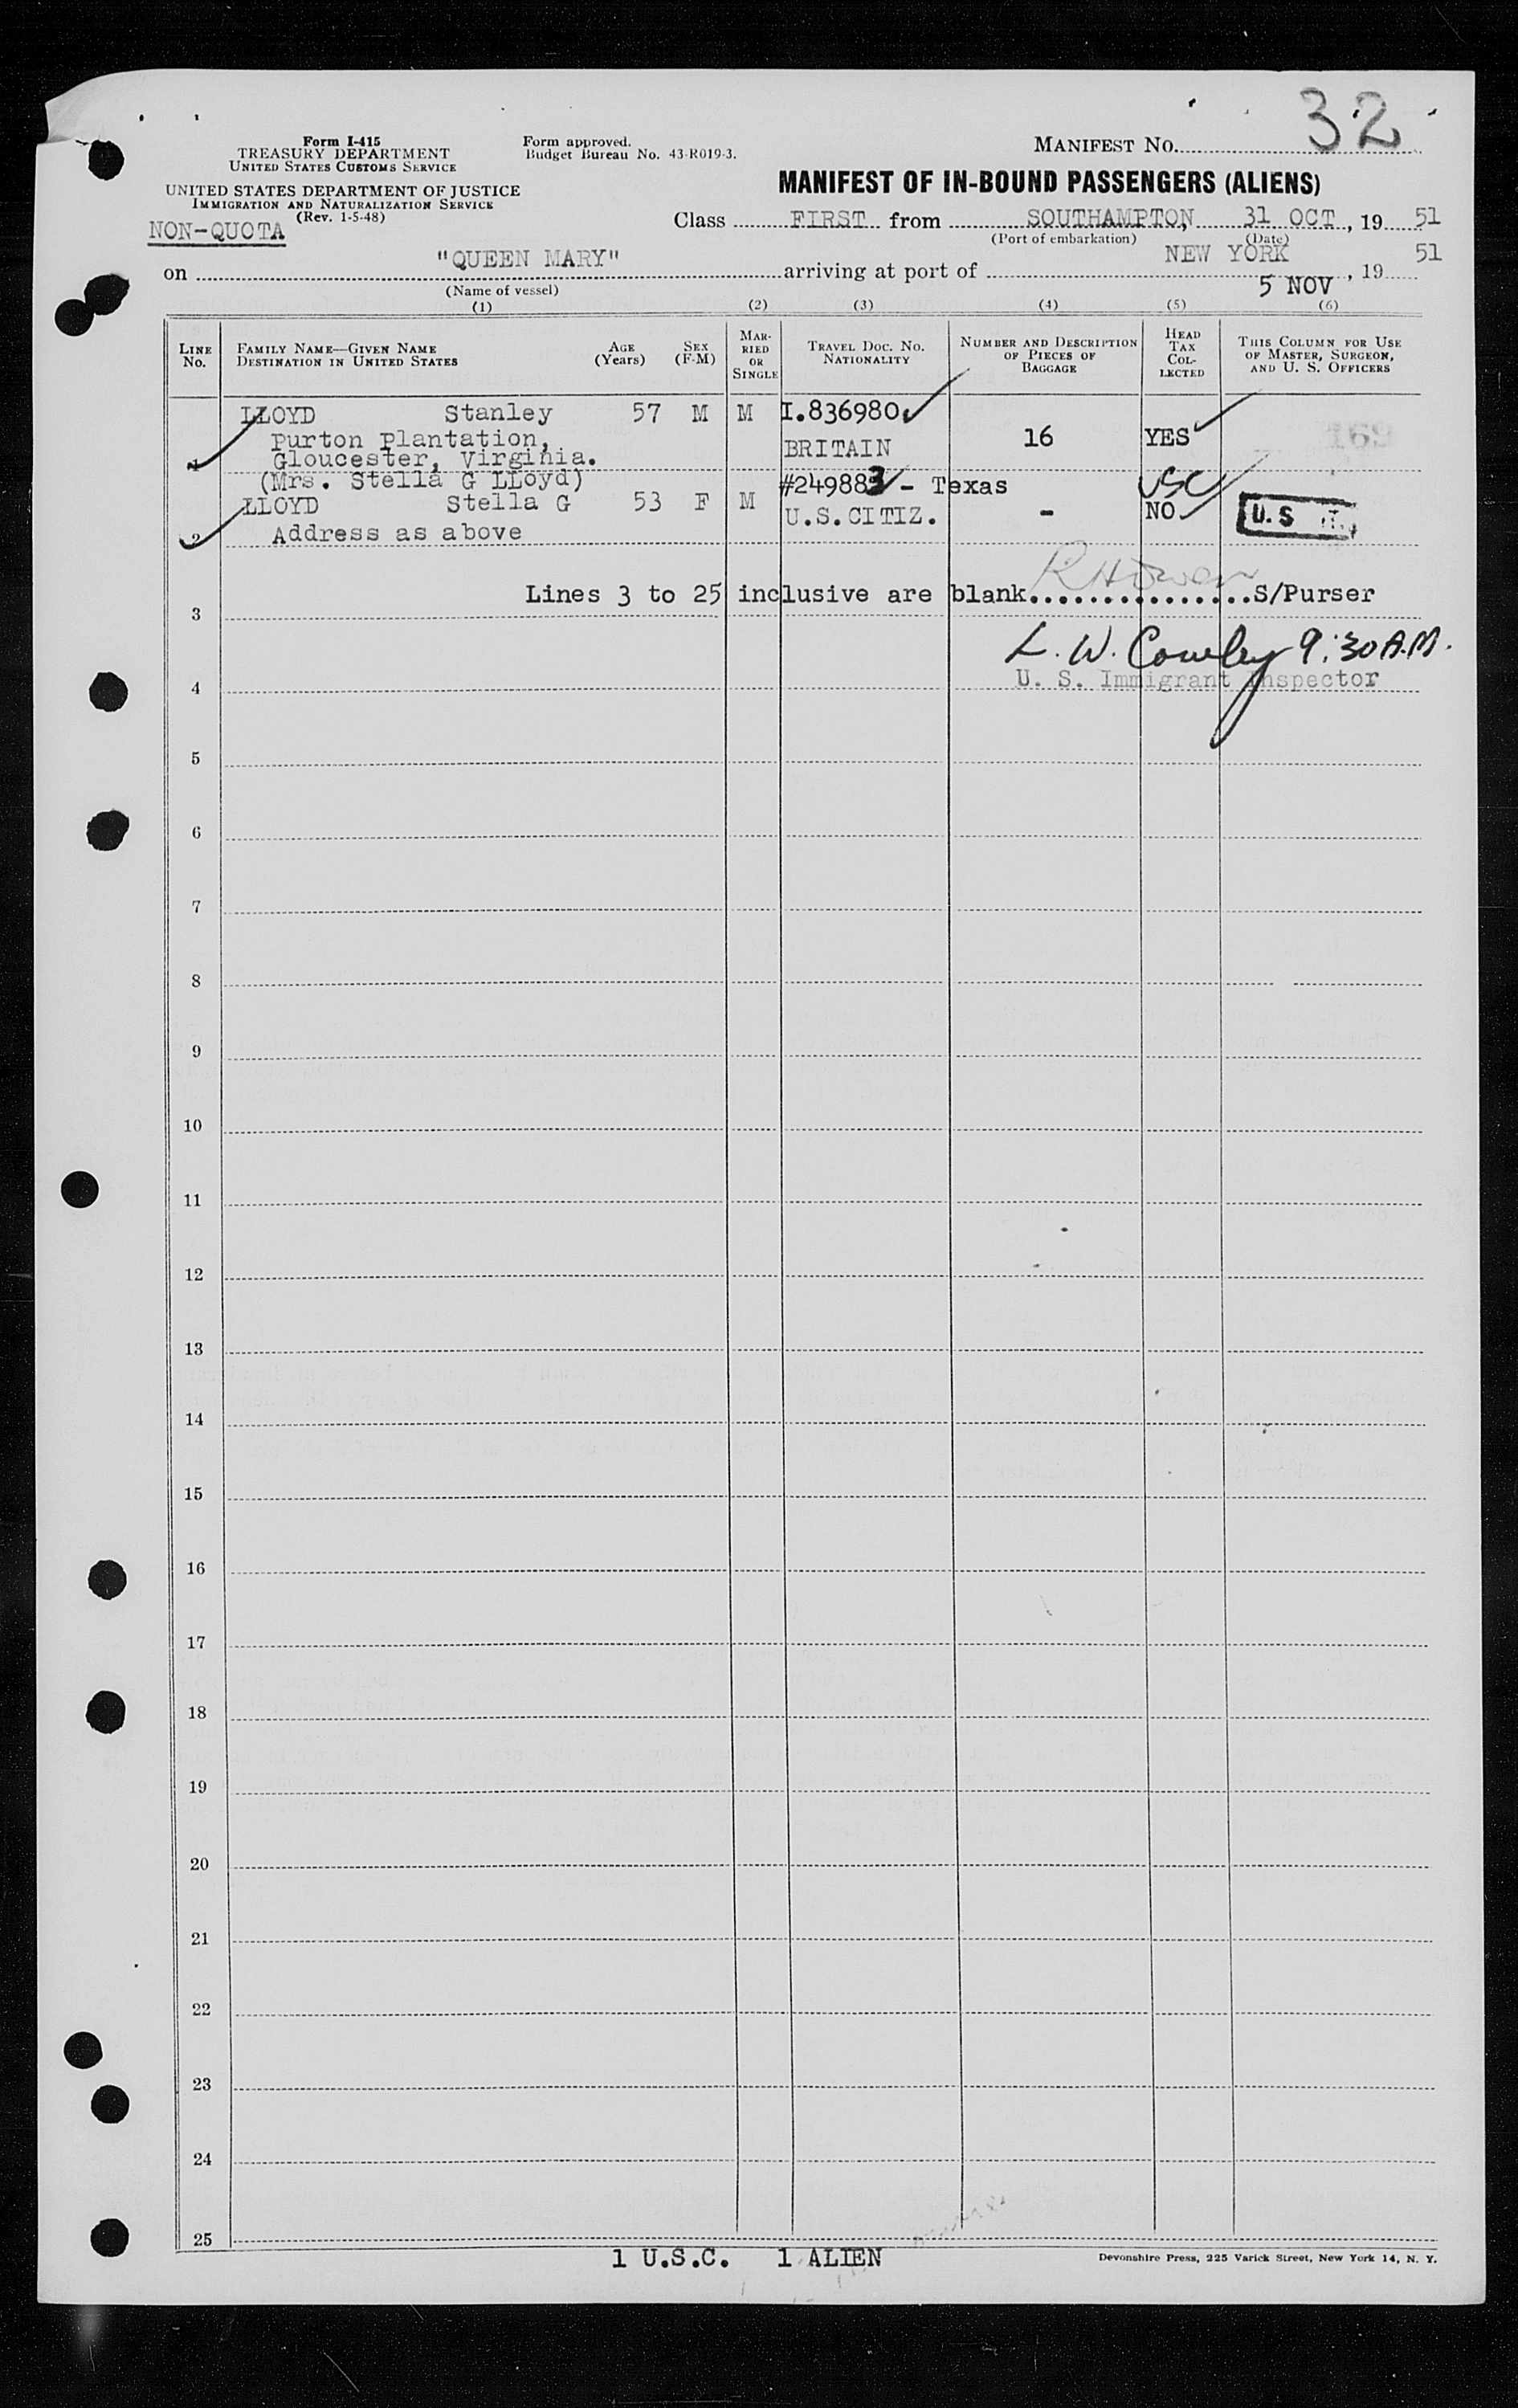 32
Form I-415
TREASURY DEPARTMENT
UNITED STATES CUSTOMS SERVICE
Form approved.
Budget Bureau No. 43-R019-3.
MANIFEST No.
UNITED STATES DEPARTMENT OF JUSTICE
IMMIGRATION AND NATURALIZATION SERVICE
(Rev. 1-5-48)
MANIFEST OF IN-BOUND PASSENGERS (ALIENS)
NON-QUOTA
Class FIRST from SOUTHAMPTON, 31 OCT, 19 51
(Port of embarkation) (Date)
on "QUEEN MARY" arriving at port of NEW YORK 5 NOV, 19 51
(Name of vessel)
(1) (2) (3) (4) (5) (6)
LINE No. FAMILY NAME—GIVEN NAME DESTINATION IN UNITED STATES AGE (Years) SEX (F-M) MARRIED OR SINGLE TRAVEL DOC. NO. NATIONALITY NUMBER AND DESCRIPTION OF PIECES OF BAGGAGE HEAD TAX COLLECTED THIS COLUMN FOR USE OF MASTER, SURGEON, AND U. S. OFFICERS
LLOYD Stanley 57 M M I.836980
1 Purton Plantation, BRITAIN 16 YES 169
Gloucester, Virginia.
(Mrs. Stella G LLoyd) #249883 - Texas USC
LLOYD Stella G 53 F M U.S.CITIZ. - NO U.S
2 Address as above
3 Lines 3 to 25 inclusive are blank...............S/Purser
L. W. Cowley 9:30 A.M.
4 U. S. Immigrant Inspector
5
6
7
8
9
10
11
12
13
14
15
16
17
18
19
20
21
22
23
24
25
1 U.S.C. 1 ALIEN
Devonshire Press, 225 Varick Street, New York 14, N. Y.